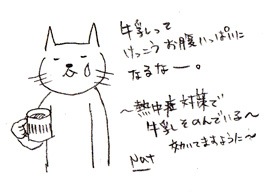 牛乳って
けっこうお腹いっぱいに
なるなー。
〜熱中症対策で
牛乳をのんでいる〜
効いてますように〜
Nat